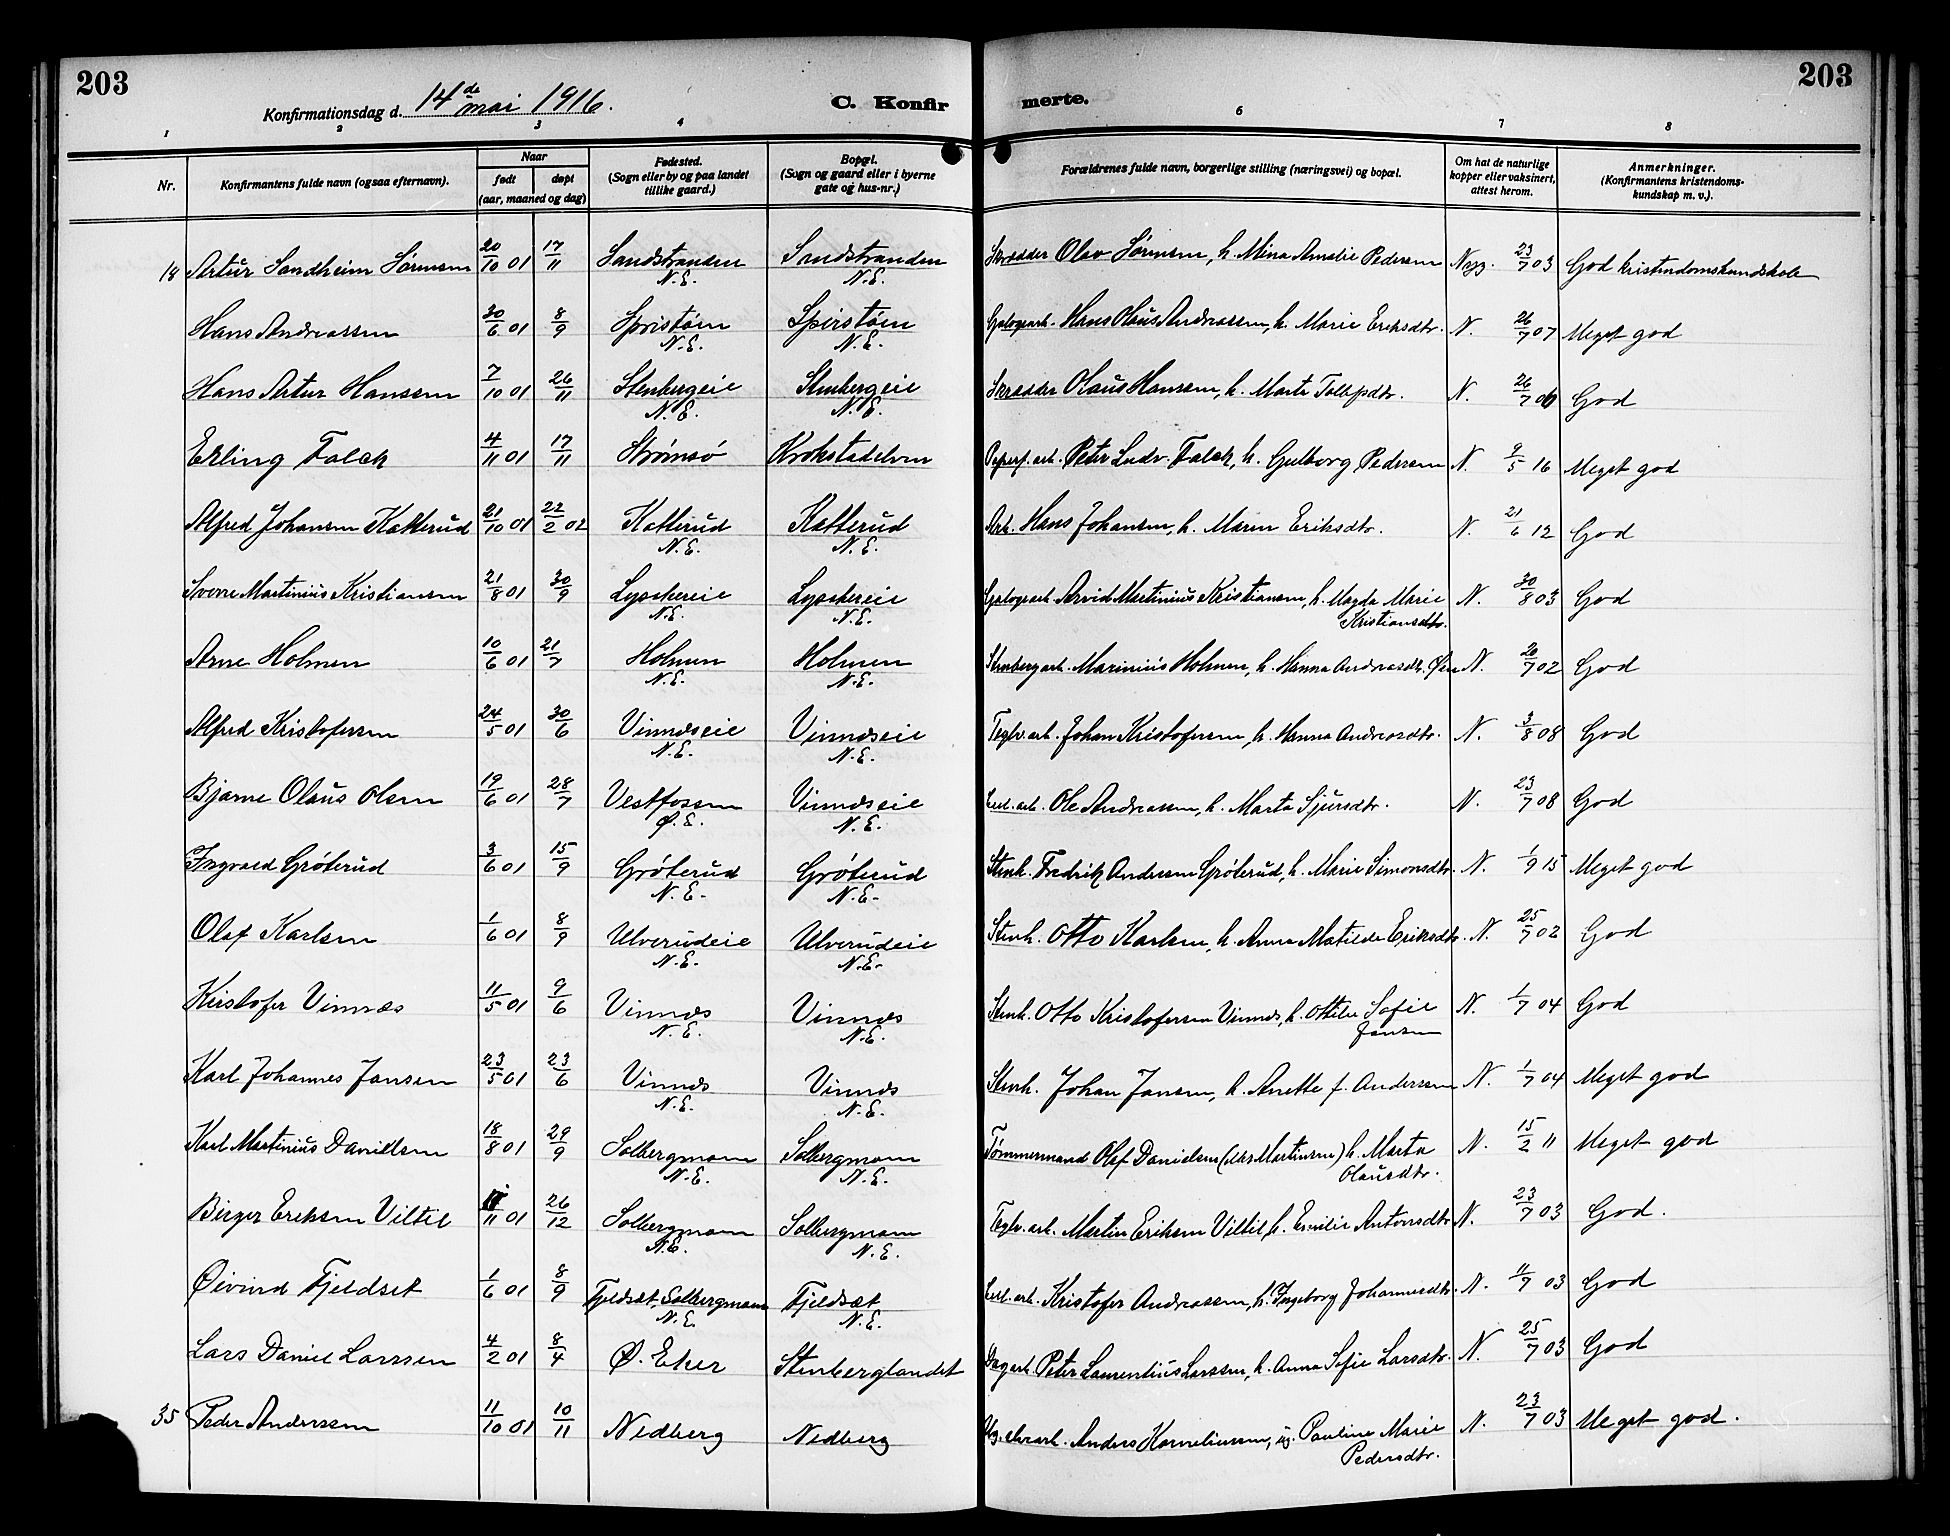 203
203
Konfirmationsdag d. 14de mai 1916.
C. Konfirmerte.
1 2 3 4 6 7 8
Nr.
Konfirmantens fulde navn (ogsaa efternavn).
Naar
født
døpt
(aar, maaned og dag)
Fødested.
(Sogn eller by og paa landet
tillike gaard.)
Bopæl.
(Sogn og gaard eller i byerne
gate og hus-nr.)
Forældrenes fulde navn, borgerlige stilling (næringsvei) og bopæl.
Om hat de naturlige
kopper eller vaksinert,
attest herom.
Anmerkninger.
(Konfirmantens kristendoms-
kundskap m. v.).
18 Artur Sandheim Sørensen 20/10 01 17/11 Sandstranden N.E. Sandstranden N.E. Skrædder Olav Sørensen, h. Mina Amalie Pedersen N. 23/7 03 God kristendomskundskab
Hans Andreassen 30/6 01 8/9 Spirstøen N.E. Spirstøen N.E. Hans Olaus Andreassen, h. Marie Eriksdtr. N. 26/7 07 Meget god
Hans Artur Hanssen 7/10 01 26/11 Stenbergeie N.E. Stenbergeie N.E. Skrædder Olaus Hansen, h. Marte Tollefsdtr. N. 26/7 06 God
Erling Falck 4/11 01 17/11 Strømsø Krokstadelven Papirf. arb. Peter Ludv. Falck, h. Gulborg Pedersen N. 9/5 16 Meget god
Alfred Johansen Katterud 21/10 01 22/2 02 Katterud N.E. Katterud N.E. Arb. Hans Johansen, h. Maren Eriksdtr. N. 21/6 12 God
Sverre Martinius Kristiansen 21/8 01 30/9 Lyschereie N.E. Lyschereie N.E. Arvid Martinius Kristiansen, h. Magda Marie Kristiansdtr. N. 30/8 03 God
Arne Holmen 10/6 01 21/7 Holmen N.E. Holmen N.E. Stenbergarb. Marinius Holmen, h. Hanna Andreasdtr. Øen N. 26/7 02 God
Alfred Kristofersen 24/5 01 30/6 Vinnæseie N.E. Vinnæseie N.E. Teglv. arb. Johan Kristofersen, h. Hanna Andreasdtr. N. 3/8 08 God
Bjarne Olaus Olsen 19/6 01 28/7 Vestfossen Ø.E. Vinnæseie N.E. Cel. arb. Ole Andreassen, h. Marta Sjursdtr. N. 23/7 08 God
Ingvald Grøterud 3/6 01 15/9 Grøterud N.E. Grøterud N.E. Stenh. Fredrik Andersen Grøterud, h. Marie Simonsdtr. N. 1/9 15 Meget god
Olaf Karlsen 1/6 01 8/9 Ulverudeie N.E. Ulverudeie N.E. Stenh. Otto Karlsen, h. Anna Matilde Eriksdtr. N. 25/7 02 God
Kristofer Vinnæs 11/5 01 9/6 Vinnæs N.E. Vinnæs N.E. Stenh. Otto Kristofersen Vinnæs, h. Ottilie Sofie Jansen N. 1/7 04 God
Karl Johannes Jansen 23/5 01 23/6 Vinnæs N.E. Vinnæs N.E. Stenh. Johan Jansen, h. Anette f. Andersen N. 1/7 04 Meget god
Karl Martinius Danielsen 18/8 01 29/9 Solbergmoen N.E. Solbergmoen N.E. Tømmermand Olaf Danielsen (eller Martinsen) h. Marta Olausdtr. N. 15/2 11 Meget god
Birger Eriksen Viltil /11 01 26/12 Solbergmoen N.E. Solbergmoen N.E. Teglv. arb. Martin Eriksen Viltil, h. Emilie Antonsdtr N. 23/7 03 God.
Øivind Fjeldset 1/6 01 8/9 Fjeldsæt, Solbergmoen N.E. Fjeldsæt N.E. Cel. arb. Kristofer Andreassen, h. Ingeborg Johannesdtr. N. 11/7 03 God
Lars Daniel Larssen 4/2 01 8/4 Ø. Eker Stenberglandet Dagarb. Peter Laurentius Larssen, h. Anna Sofie Larsdtr. N. 25/7 03 God
35 Peder Anderssen 11/10 01 10/11 Nedberg Nedberg Anders Korneliussen, ug. Pauline Marie Pedersdtr. N. 23/7 03 Meget god.